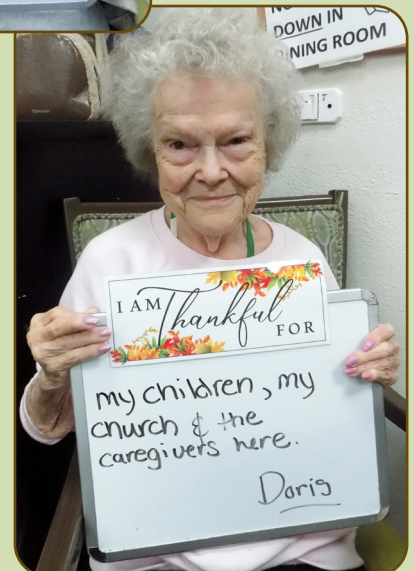 DOWN IN
NING ROOM
I AM Thankful FOR
my children, my
church & the
caregivers here.
Doris